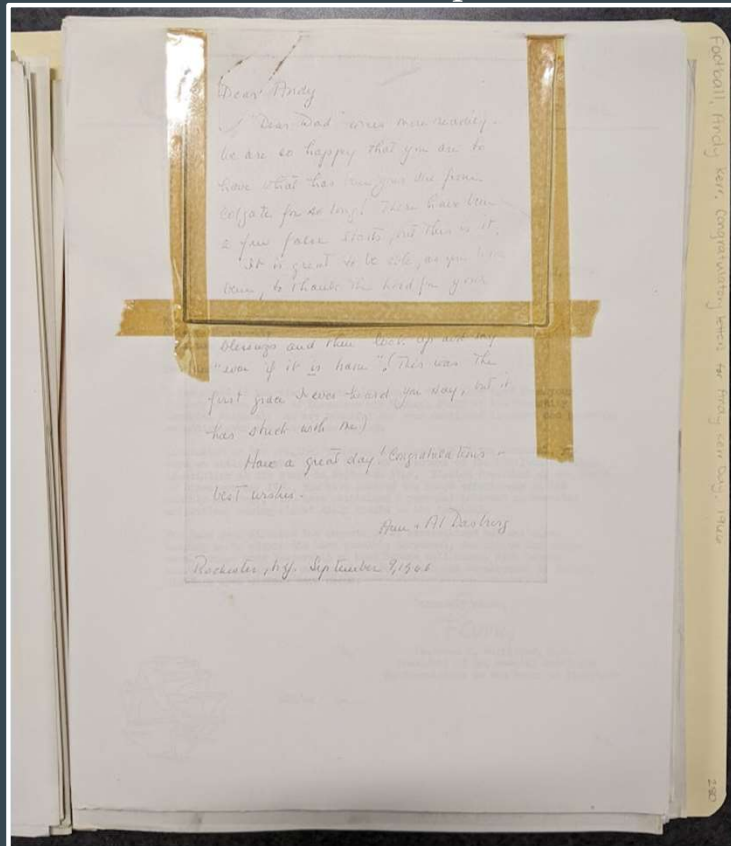 Dear Andy
"Dear Dad" comes more readily.
We are so happy that you are to
have what has been your due from
Colgate for so long! There have been
a few false starts, but this is it.
It is great to be able, as you have
been, to thank the Lord for your
blessings and then look up and say
"even if it is ham"! (This was the
first grace I ever heard you say, but it
has stuck with me)
Have a great day! Congratulations -
best wishes.
Al Dasburg
Rochester, N.Y. September 9, 1966
Football, Andy Kerr, Congratulatory letters for Andy Kerr Day, 1966